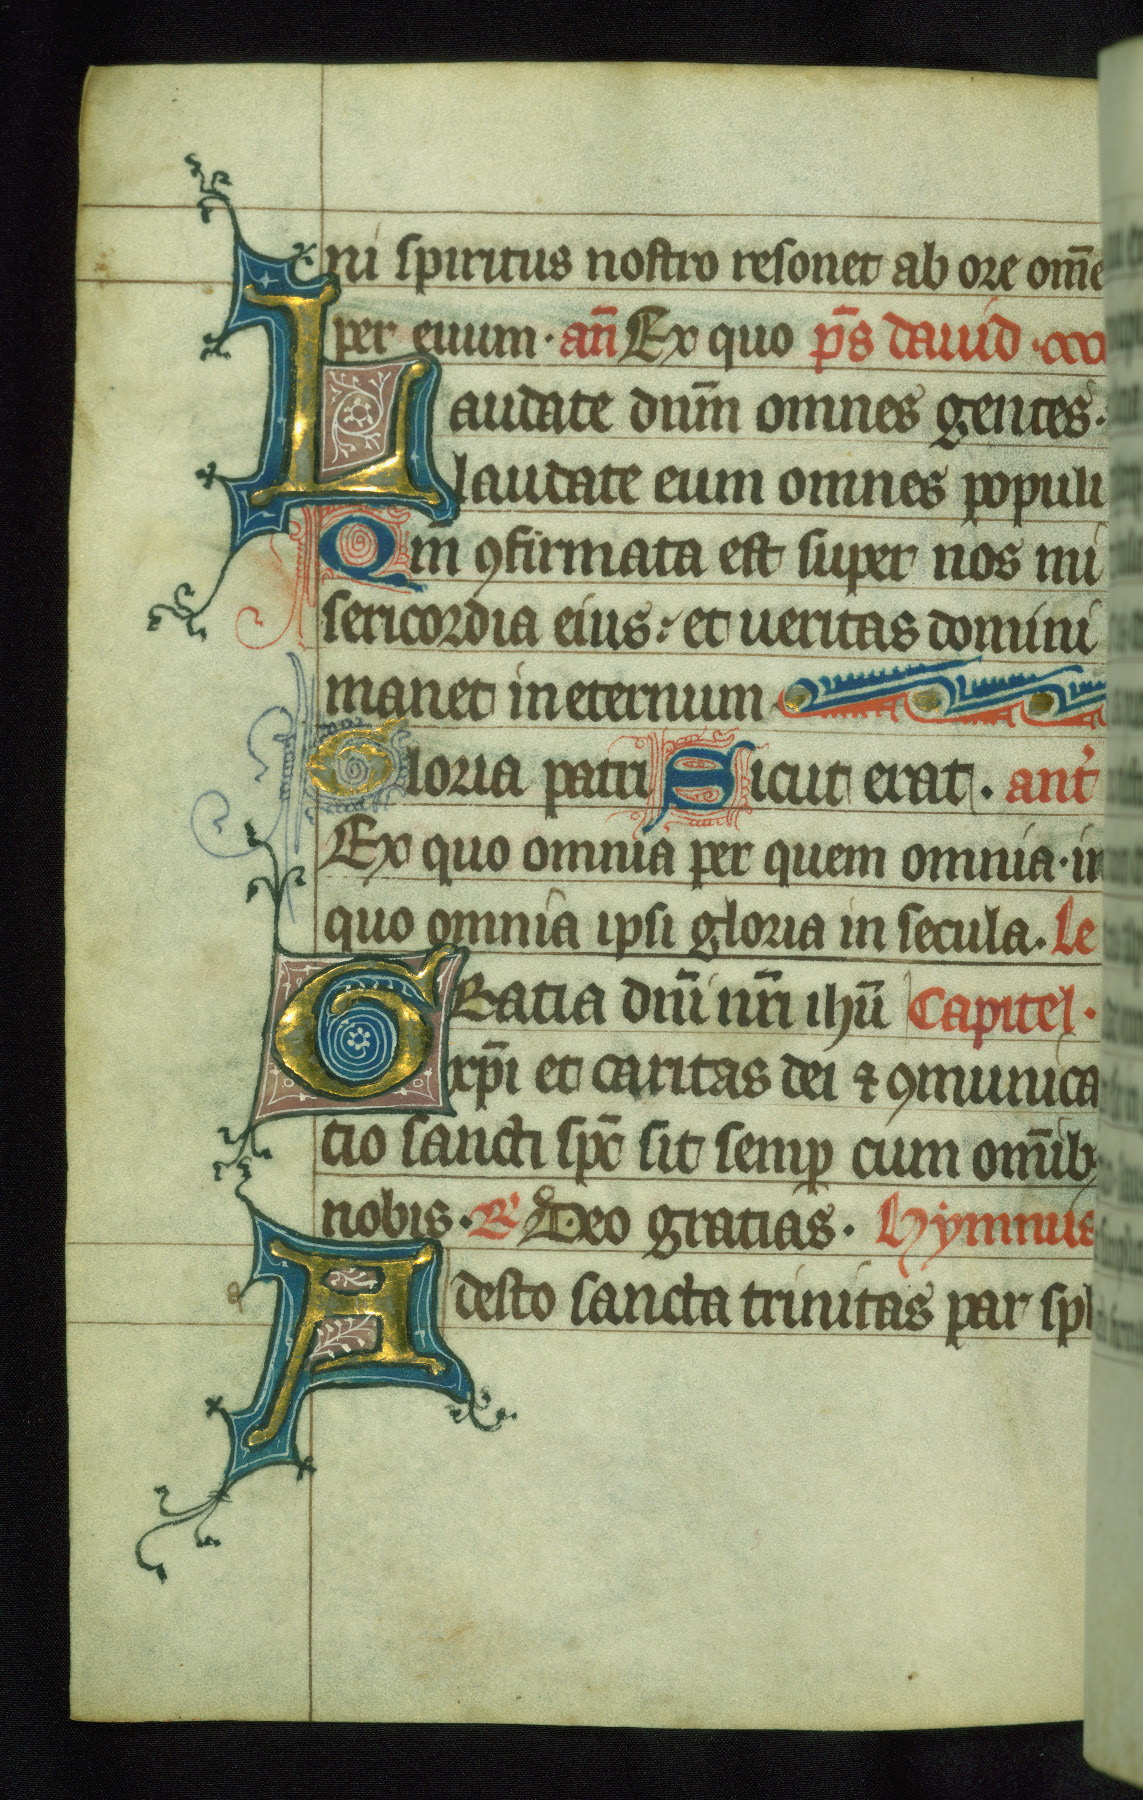 ni spiritus nostro resonet ab ore om̄e
per euum · an̄ Ex quo p̄s dauid · cxvi
Laudate dn̄m omnes gentes ·
laudate eum omnes populi
Qm ꝯfirmata est super nos mi
sericordia eius : et ueritas domini
manet in eternum
Gloria patri Sicut erat . ant̉
Ex quo omnia per quem omnia · in
quo omnia ipsi gloria in secula . Le
GRatia dn̄i nr̄i ihū Capitel ·
xp̄i et caritas dei ⁊ ꝯmunica
tio sancti sp̄c sit semꝑ cum om̄ib
nobis · R̉ Deo gratias . Hymnus
Adesto sancta trinitas par spl